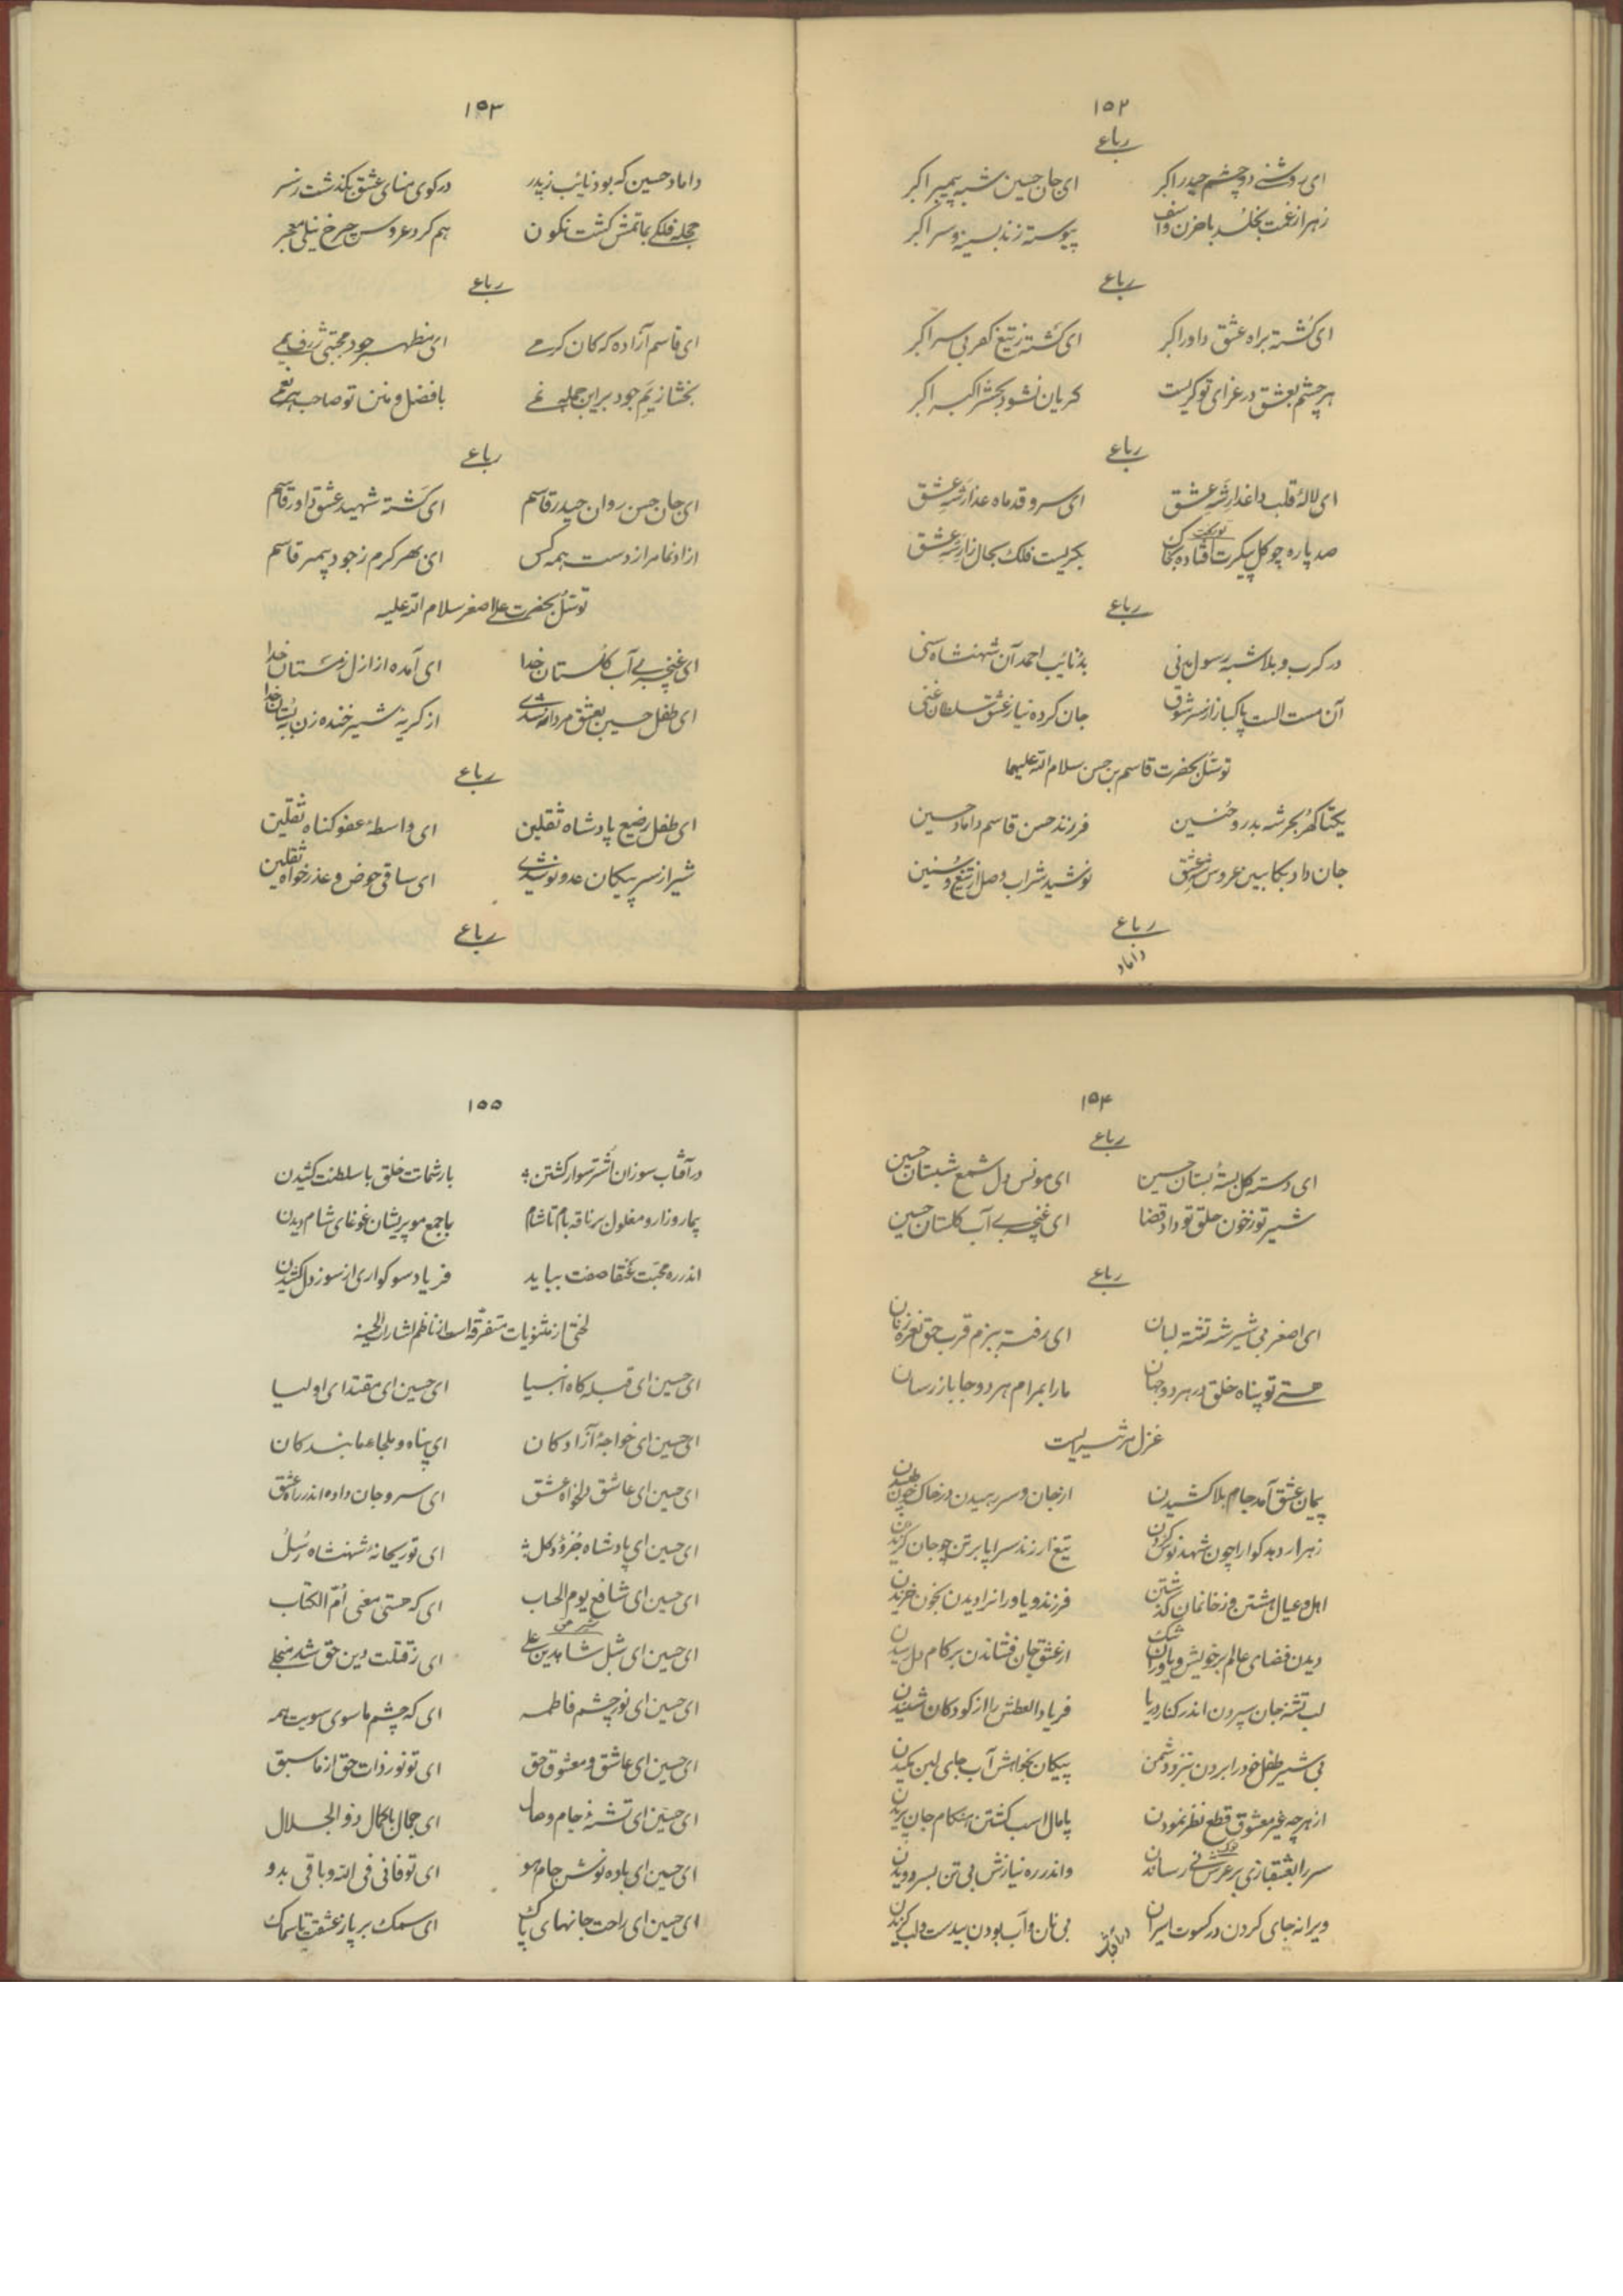 ۱۵۲
رباعی
ای روشنی دو چشم حیدر اکبر ای جان حسین شبه پیمبر اکبر
زهرا ز غمت بخلد با حزن و اسف پیوسته زند بسینه و سر اکبر
رباعی
ای کشته براه عشق داور اکبر ای کشته ز تیغ کفر بی سر اکبر
هر چشم بعشق در عزای تو گریست گریان نشود بحشر اکبر
رباعی
ای لالهٔ قلب داغدار شه عشق ای سرو قد ماه عذار شه عشق
صد پاره چو گل پیکرت افتاده بخاک بگریست فلک بحال زار شه عشق
رباعی
در کرب و بلا شبه رسول مدنی بد نایب احمد آن شهنشاه سنی
آن مست الست پاکباز از سر شوق جان کرده نیاز عشق سلطان غنی
توسل بحضرت قاسم بن حسن سلام الله علیهما
یکتا گهر بحر شه بدر و حنین فرزند حسن قاسم داماد حسین
جان داد بکابین عروس شه عشق نوشید شراب وصل از تیغ و سنین
رباعی
داماد
۱۵۳
داماد حسین که بود نایب ز پدر در کوی منای عشق بگذشت ز سر
حجله فلکی بماتمش گشت نگون هم کرد عروس چرخ نیلی معجر
رباعی
ای قاسم آزاده که کان کرمی ای مظهر جود مجتبی ژرف یمی
بخشا ز یم جود بر این جمله نمی با فضل و منن تو صاحب نعمی
رباعی
ای جان حسن روان حیدر قاسم ای کشته شهید عشق داور قاسم
آزاد نما مرا ز دست همه کس ای بهر کرم ز جود پیمبر قاسم
توسل بحضرت علی اصغر سلام الله علیه
ای غنچه بی آب گلستان خدا ای آمده از ازل ز مستان خدا
ای طفل حسین بعشق مردانه شدی از گریهٔ شیر خنده زن بستان خدا
رباعی
ای طفل رضیع پادشاه ثقلین ای واسطهٔ عفو گناه ثقلین
شیر از سر پیکان عدو نوشیدی ای ساقی حوض و عذر خواه ثقلین
رباعی
۱۵۴
رباعی
ای دسته گل بستهٔ بستان حسین ای مونس دل شمع شبستان حسین
شیر تو ز خون حلق تو داد قضا ای غنچه بی آب گلستان حسین
رباعی
ای اصغر بی شیر شه تشنه لبان ای رفته ببزم قرب حق نعره زنان
هستی تو پناه خلق در هر دو جهان ما را بمرام هر دو جا باز رسان
غزل مرثیه است
پیمان عشق آمد جام بلا کشیدن از جان و سر رهیدن در خاک و خون طپیدن
زهر ار دهد گوارا چون شهد نوش کردن تیغ ار زند سراپا بر تن چو جان گزیدن
اهل و عیال هشتن وز خانمان گذشتن فرزند و یاوران را دیدن بخون خزیدن
دیدن فضای عالم بر خویش و یاوران تنگ از عشق جان فشاندن بر کام دل رسیدن
لب تشنه جان سپردن اندر کنار دریا فریاد العطش را از کودکان شنیدن
بی شیر طفل خود را بردن بنزد دشمن پیکان بخواهش آب جای لبن مکیدن
از هر چه غیر معشوق قطع نظر نمودن پامال اسب گشتن هنگام جان پریدن
سر را بعشقبازی بر عرش نی رساندن واندر ره نیازش بی تن بسر دویدن
ویرانه جای کردن در کسوت اسیران بی نان و آب بودن بیدست و لب گزیدن
۱۵۵
در آفتاب سوزان اشتر سوار گشتن بار شماتت خلق با سلطنت کشیدن
بیمار و زار و مغلول بر ناقه بام تا شام با جمع مو پریشان غوغای شام دیدن
اندر ره محبت عنقا صفت بباید فریاد سوگواری از سوز دل کشیدن
لختی از مثنویات متفرقه است از ناظم اشارات الحسینیه
ای حسین ای قبله گاه انبیا ای حسین ای مقتدای اولیا
ای حسین ای خواجهٔ آزادگان ای پناه و ملجاء ما بندگان
ای حسین ای عاشق دلخواه عشق ای سر و جان داده اندر راه عشق
ای حسین ای پادشاه جزء و کل ای تو ریحانهٔ شهنشاه رسل
ای حسین ای شافع یوم الحساب ای که هستی معنی ام الکتاب
ای حسین ای شبل شاه دین علی ای ز قتلت دین حق شد منجلی
ای حسین ای نور چشم فاطمه ای که چشم ما سوی سویت همه
ای حسین ای عاشق و معشوق حق ای تو نور ذات حق از ما سبق
ای حسین ای تشنهٔ جام وصال ای جمال با کمال ذو الجلال
ای حسین ای باده نوش جام هو ای تو فانی فی الله و باقی بدو
ای حسین ای راحت جانهای پاک ای سمک بر پا ز عشقت تا سماک